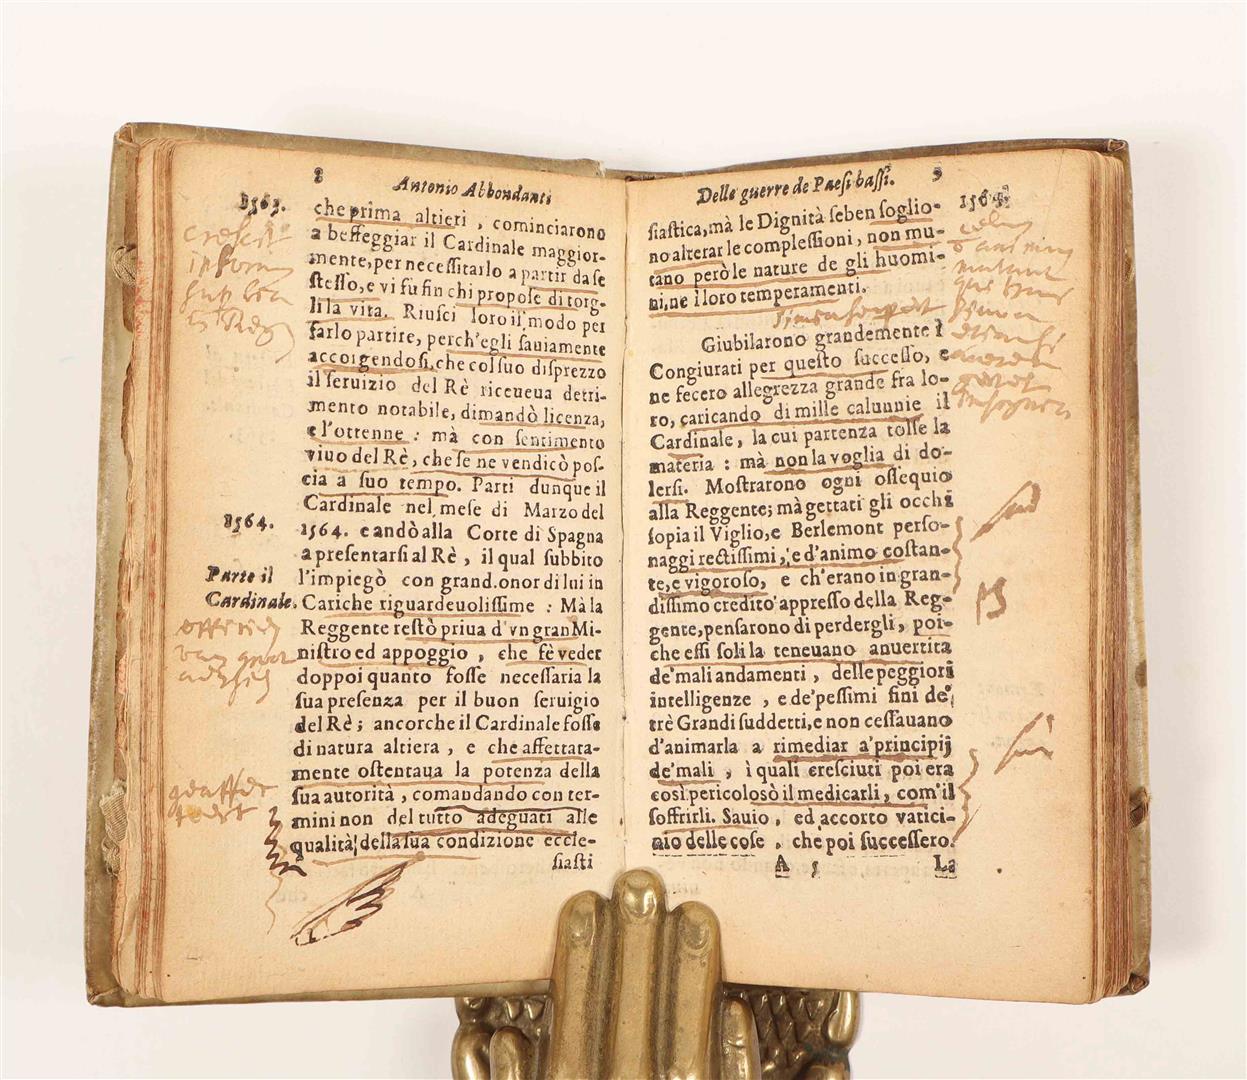 8 Antonio Abbondanti
1563.
che prima altieri , cominciarono
a beffeggiar il Cardinale maggior-
mente, per necessitarlo a partir da se
stesso, e vi fu fin chi propose di torg-
li la vita. Riusci loro il modo per
farlo partire, perch'egli sauiamente
accorgendosi, che col suo disprezzo
il seruizio del Rè riceueua detri-
mento notabile, dimandò licenza,
e l'ottenne : mà con sentimento
viuo del Rè, che se ne vendicò pos-
cia a suo tempo. Parti dunque il
Cardinale nel mese di Marzo del
1564.
1564. e andò alla Corte di Spagna
a presentarsi al Rè , il qual subbito
Parte il
Cardinale.
l'impiegò con grand.onor di lui in
Cariche riguardeuolissime : Mà la
Reggente restò priua d'vn gran Mi-
nistro ed appoggio , che fè veder
doppoi quanto fosse necessaria la
sua presenza per il buon seruigio
del Rè ; ancorche il Cardinale fosse
di natura altiera , e che affettata-
mente ostentaua la potenza della
sua autorità , comandando con ter-
mini non del tutto adeguati alle
qualità della sua condizione eccle-
siasti
Delle guerre de Paesi bassi. 9
1564.
siastica, mà le Dignità seben soglio-
no alterar le complessioni, non mu-
tano però le nature de gli huomi-
ni, ne i loro temperamenti.
Giubilarono grandemente i
Congiurati per questo successo, e
ne fecero allegrezza grande fra lo-
ro, caricando di mille calunnie il
Cardinale, la cui partenza tolse la
materia : mà non la voglia di do-
lersi. Mostrarono ogni ossequio
alla Reggente; mà gettati gli occhi
sopia il Viglio, e Berlemont perso-
naggi rectissimi, e d'animo costan-
te, e vigoroso, e ch'erano in gran-
dissimo credito appresso della Reg-
gente, pensarono di perdergli, poi-
che essi soli la teneuano anuertita
de' mali andamenti , delle peggiori
intelligenze , e de' pessimi fini de'
trè Grandi suddetti, e non cessauano
d'animarla a rimediar a' principij
de' mali , i quali cresciuti poi era
così pericoloso il medicarli, com'il
soffrirli. Sauio, ed accorto vatici-
nio delle cose, che poi successero.
A 5 La